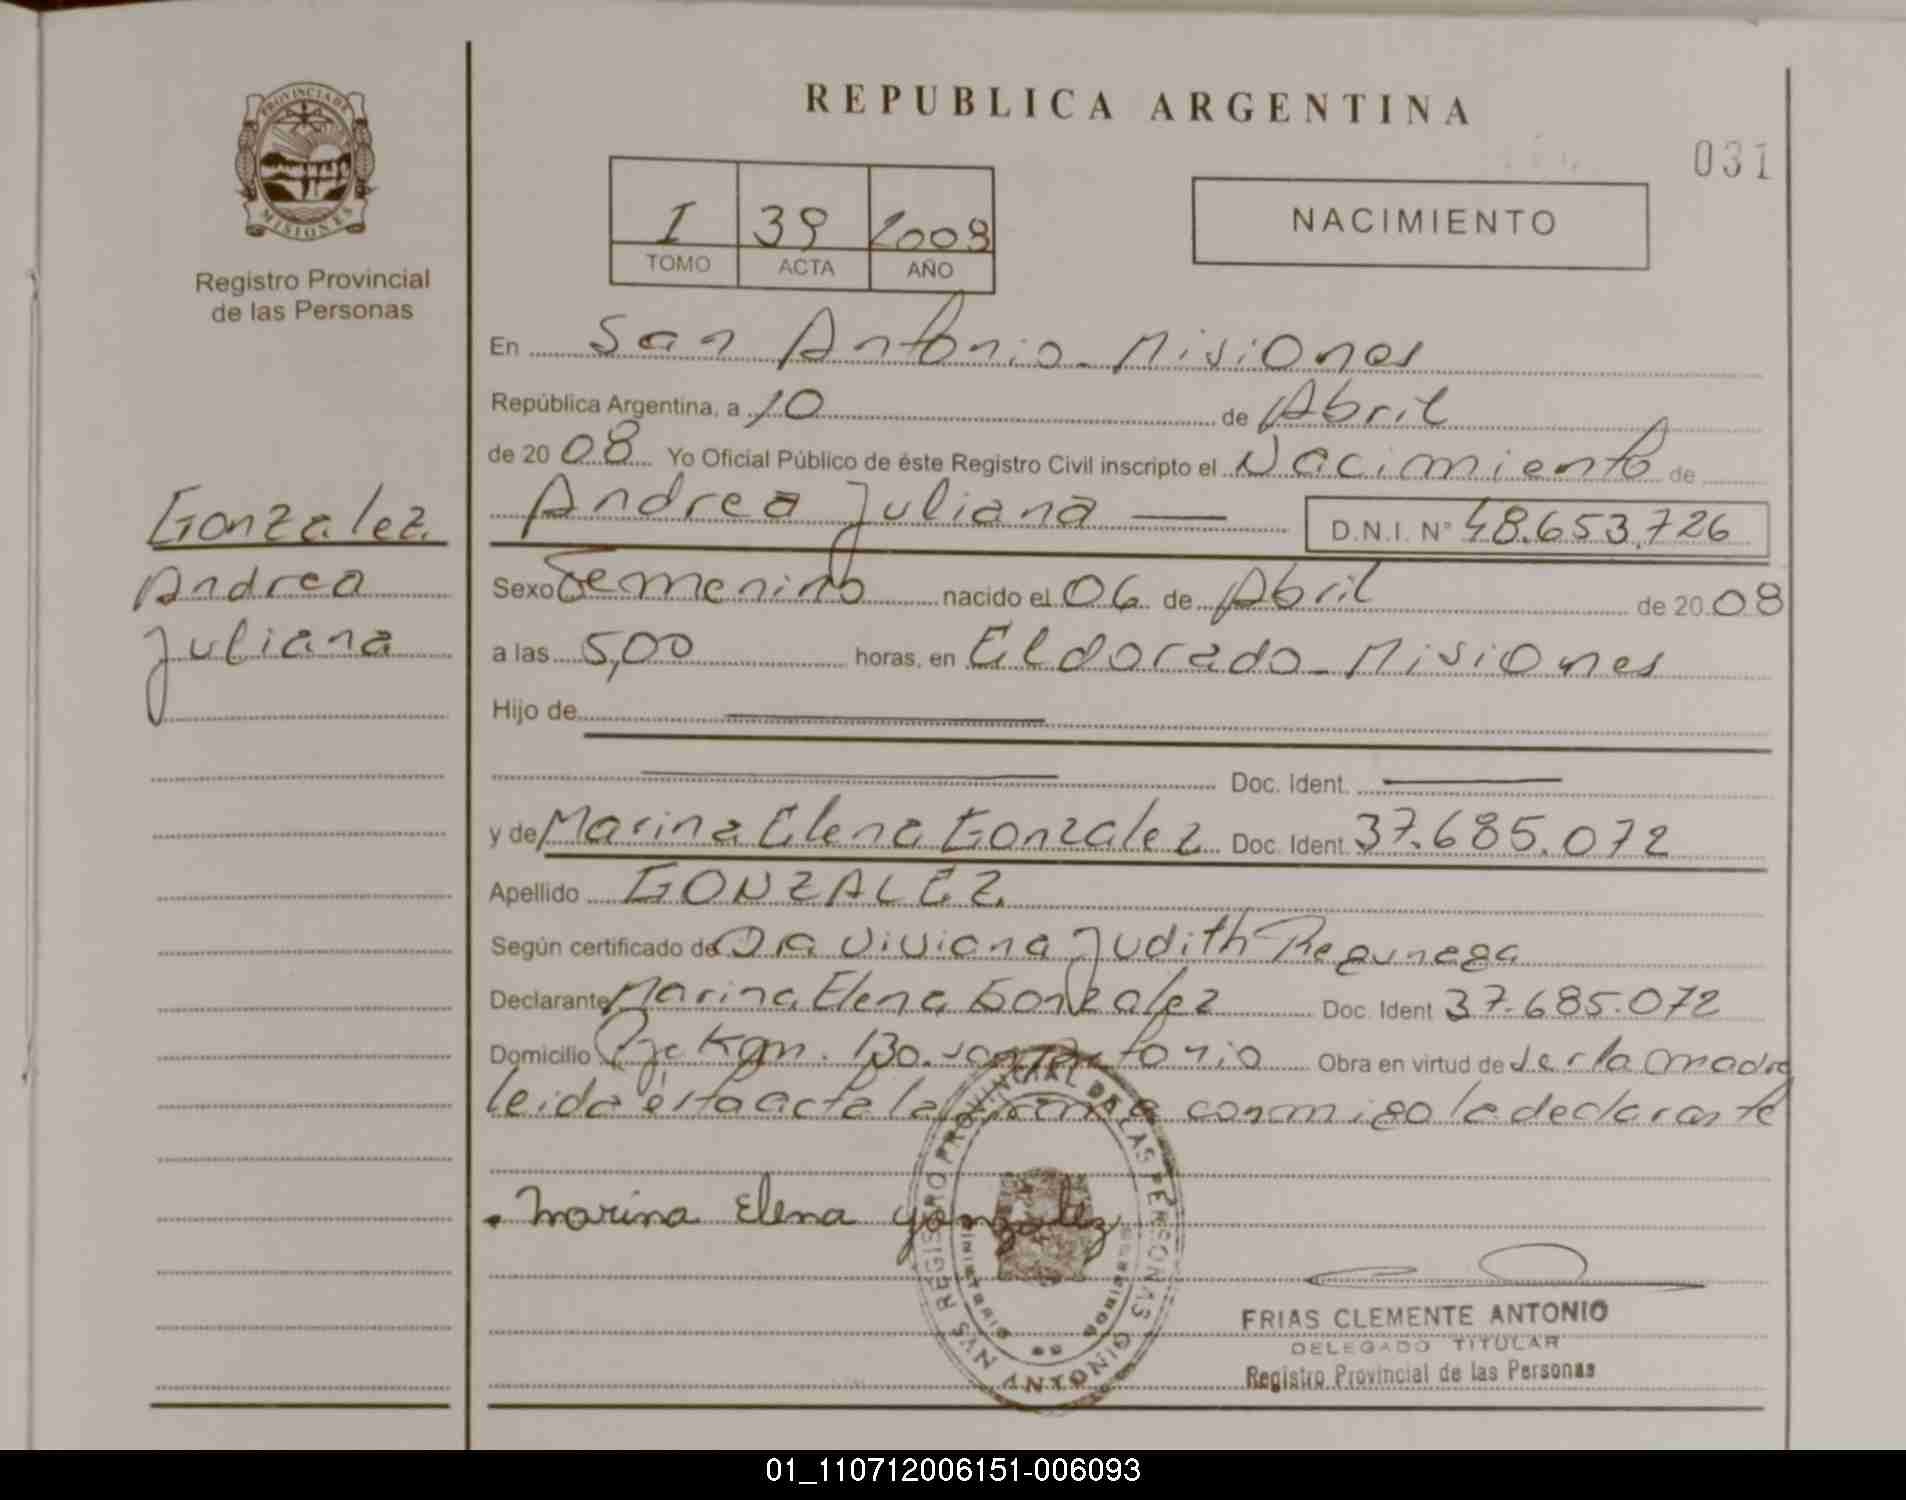 PROVINCIA DE
MISIONES
Registro Provincial
de las Personas
REPUBLICA ARGENTINA
031
I 39 2008
TOMO ACTA AÑO
NACIMIENTO
En San Antonio - Misiones
República Argentina, a 10 de Abril
de 20 08 Yo Oficial Público de éste Registro Civil inscripto el Nacimiento de
Andrea Juliana D.N.I. Nº 48.653.726
Gonzalez
Andrea
Juliana
Sexo Femenino nacido el 06 de Abril de 20 08
a las 5,00 horas, en Eldorado - Misiones
Hijo de
Doc. Ident.
y de Marina Elena Gonzalez Doc. Ident. 37.685.072
Apellido GONZALEZ
Según certificado de Dra Viviana Judith
Declarante Marina Elena Gonzalez Doc. Ident 37.685.072
Domicilio Bo. San Antonio Obra en virtud de ser la madre
leida ésta acta la firma conmigo la declarante
Marina Elena Gonzalez
REGISTRO PROVINCIAL DE LAS PERSONAS
FRIAS CLEMENTE ANTONIO
DELEGADO TITULAR
Registro Provincial de las Personas
01_110712006151-006093